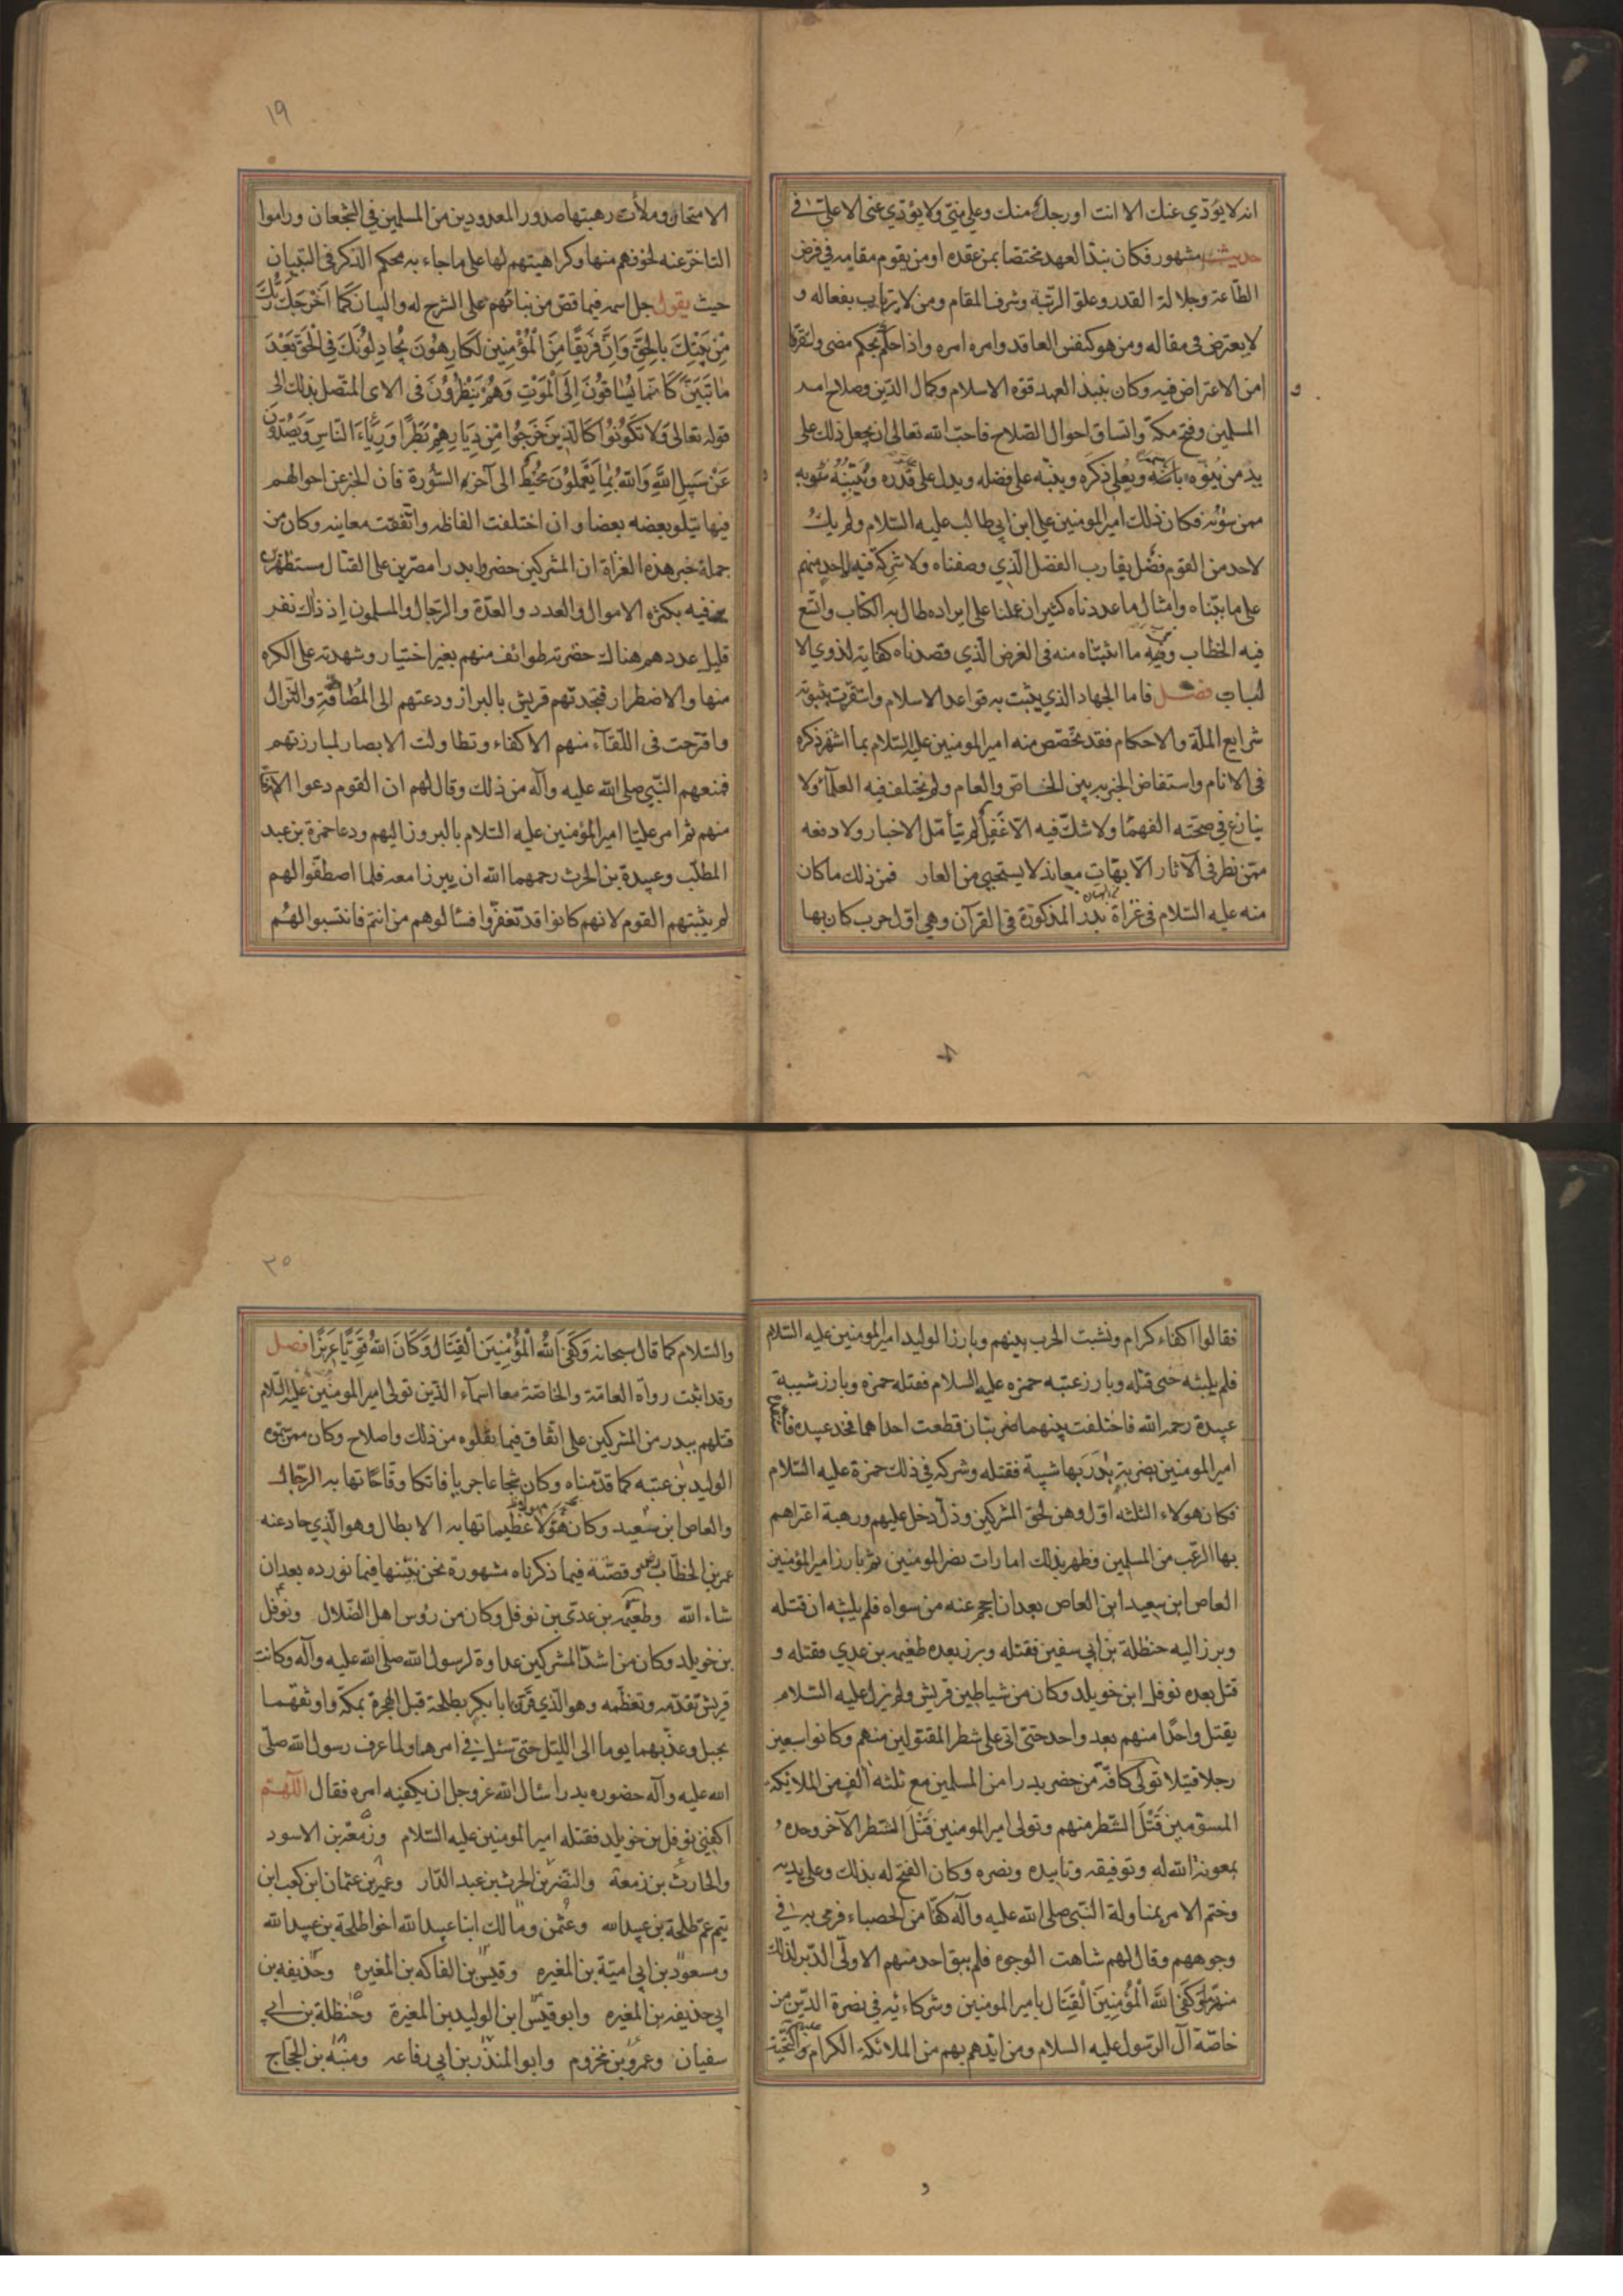 انه لا يؤدي عنك الا انت او رجل منك وعلي مني ولا يؤدي عني الا علي في
حديث مشهور فكان نبذ العهد مختصا بمن عقده او من يقوم مقامه في فرض
الطاعة وجلالة القدر وعلو الرتبة وشرف المقام ومن لا يرتاب بفعاله و
لا يعترض في مقاله ومن هو كنفس العاقد وامره امره واذا حكم بحكم مضى واستقر
امن الاعتراض فيه وكان بنبذ العهد قوة الاسلام وكمال الدين وصلاح امر
و
المسلمين وفتح مكة واتساق احوال الصلاح فاحب الله تعالى ان يجعل ذلك على
يد من ينوه باسمه ويعلي ذكره وينبه على فضله ويدل على قدره ويبينه
ممن سواه فكان ذلك امير المومنين علي ابن ابي طالب عليه السلام ولم يك
لاحد من القوم فضل يقارب الفضل الذي وصفناه ولا شركه فيه احد منهم
على ما بيناه وامثال ما عددناه كثير ان عملنا على ايراده طال به الكتاب واتسع
فيه الخطاب وفيما اثبتناه منه في الغرض الذي قصدناه كفاية لذوي الا
لباب فصل فاما الجهاد الذي يثبت به قواعد الاسلام واستقرت بثبوته
شرايع الملة والاحكام فقد تخصص منه امير المومنين عليه السلام بما اشتهر ذكره
في الانام واستفاض الخبر به بين الخاص والعام ولم يختلف فيه العلماء ولا
ينازع في صحته الفهما ولا شك فيه الا غفل لم يتأمل الاخبار ولا دفعه
ممن نظر في الآثار الا بهات معاند لا يستحيي من العار فمن ذلك ما كان
منه عليه السلام في غزاة بدر المذكورة في القرآن وهي اول حرب كان بها
١٩
الامتحان وملأت رهبتها صدور المعدودين من المسلمين في الشجعان وراموا
التاخر عنه لخوفهم منها وكراهيتهم لها على ما جاء به محكم الذكر في التبيان
حيث يقول جل اسمه فيما قص من نبائهم على الشرح له والبيان كَمَا اَخْرَجَكَ رَبُّكَ
مِنْ بَيْتِكَ بِالْحَقِّ وَاِنَّ فَرِيقًا مِنَ الْمُؤْمِنِينَ لَكَارِهُونَ يُجَادِلُونَكَ فِي الْحَقِّ بَعْدَ
مَا تَبَيَّنَ كَاَنَّمَا يُسَاقُونَ اِلَى الْمَوْتِ وَهُمْ يَنْظُرُونَ في الاى المتصل بذلك الى
قوله تعالى وَلَا تَكُونُوا كَالَّذِينَ خَرَجُوا مِنْ دِيَارِهِمْ بَطَرًا وَرِئَاءَ النَّاسِ وَيَصُدُّونَ
عَنْ سَبِيلِ اللَّهِ وَاللَّهُ بِمَا يَعْمَلُونَ مُحِيطٌ الى آخر السورة فان الخبر عن احوالهم
فيها يتلو بعضه بعضا وان اختلفت الفاظه واتفقت معانيه وكان من
جملة خبر هذه الغزاة ان المشركين حضروا بدرا مصرين على القتال مستظهرين
فيه بكثرة الاموال والعدد والعدة والرجال والمسلمون اذ ذاك نفر
قليل عددهم هناك حضرته طوائف منهم بغير اختيار وشهدته على الكره
منها والاضطرار فتحدتهم قريش بالبراز ودعتهم الى المصافة والنزال
واقترحت في اللقاء منهم الاكفاء وتطاولت الابصار لمبارزتهم
فمنعهم النبي صلى الله عليه وآله من ذلك وقال لهم ان القوم دعوا الاكفاء
منهم ثم امر عليا امير المؤمنين عليه السلام بالبروز اليهم ودعا حمزة بن عبد
المطلب وعبيدة بن الحرث رحمهما الله ان يبرزا معه فلما اصطفوا لهم
لم يثبتهم القوم لانهم كانوا قد تغفروا فسالوهم من انتم فانتسبوا لهم
فقالوا اكفاء كرام ونشبت الحرب بينهم وبارز الوليد امير المومنين عليه السلام
فلم يلبثه حتى قتله وبارز عتبه حمزه عليه السلام فقتله حمزه وبارز شيبة
عبيدة رحمه الله فاختلفت بينهما ضربتان قطعت احداهما فخذ عبيده فاستنقذه
امير المومنين بضربة بدر بها شيبة فقتله وشركه في ذلك حمزة عليه السلام
فكان هولاء الثلثه اول وهن لحق المشركين وذل دخل عليهم ورهبة اعتراهم
بها الرعب من المسلمين وظهر بذلك امارات نصر المومنين ثم بارز امير المؤمنين
العاص ابن سعيد ابن العاص بعد ان احجم عنه من سواه فلم يلبثه ان قتله
وبرز اليه حنظلة بن ابي سفين فقتله وبرز بعده طعيمه بن عدي فقتله و
قتل بعده نوفل ابن خويلد وكان من شياطين قريش ولم يزل عليه السلام
يقتل واحدا منهم بعد واحد حتى اتى على شطر المقتولين منهم وكانوا سبعين
رجلا قتيلا تولى كافة من حضر بدرا من المسلمين مع ثلثه الف من الملائكه
المسومين قَتْلَ الشطر منهم وتولى امير المومنين قَتْلَ الشطر الآخر وحده
بمعونة الله له وتوفيقه وتاييده ونصره وكان الفتح له بذلك وعلى يديه
وختم الامر بمناولة النبي صلى الله عليه وآله كفا من الحصباء فرمى به في
وجوههم وقال لهم شاهت الوجوه فلم يبق احد منهم الا ولى الدبر لذلك
منهزما وَكَفَى اللَّهُ الْمُؤْمِنِينَ الْقِتَالَ بامير المومنين وشركائه في نصرة الدين من
خاصة آل الرسول عليه السلام ومن ايدهم بهم من الملائكة الكرام عليهم التحية
٢٠
والسلام كما قال سبحانه وَكَفَى اللهُ الْمُؤْمِنِينَ الْقِتَالَ وَكَانَ اللهُ قَوِيًّا عَزِيزًا فصل
وقد اثبت رواه العامة والخاصة معا اسماء الذين تولى امير المومنين عليه السلام
قتلهم ببدر من المشركين على اتفاق فيما نقلوه من ذلك واصلاح وكان ممن سموه
الوليد بن عتبه كما قدمناه وكان شجاعا جريا فاتكا وقاحا تهابه الرجال
والعاص ابن سعيد وكان هولا عظيما تهابه الابطال وهو الذي حاد عنه
عمر بن الخطاب وقصته فيما ذكرناه مشهورة نحن نبينها فيما نورده بعد ان
شاء الله وطعيمه بن عدي بن نوفل وكان من رؤس اهل الضلال ونوفل
بن خويلد وكان من اشد المشركين عداوة لرسول الله صلى الله عليه وآله وكانت
قريش تقدمه وتعظمه وهو الذي قرن ابا بكر بطلحة قبل الهجرة بمكة واوثقهما
بحبل وعذبهما يوما الى الليل حتى سئل في امرهما ولما عرف رسول الله صلى
الله عليه وآله حضوره بدرا سال الله عز وجل ان يكفيه امره فقال اللهم
اكفني نوفل بن خويلد فقتله امير المومنين عليه السلام وزمعة بن الاسود
والحارث بن زمعة والنضر بن الحرث بن عبد الدار وعمير بن عثمان ابن كعب ابن
تيم عم طلحة بن عبيد الله وعثمن ومالك ابنا عبيد الله اخوا طلحة بن عبيد الله
ومسعود بن ابي امية بن المغيره وقيس بن الفاكه بن المغيره وحذيفه بن
ابي حذيفه بن المغيره وابو قيس ابن الوليد بن المغيرة وحنظلة بن ابي
سفيان وعمرو بن مخزوم وابو المنذر بن ابي رفاعه ومنبه بن الحجاج